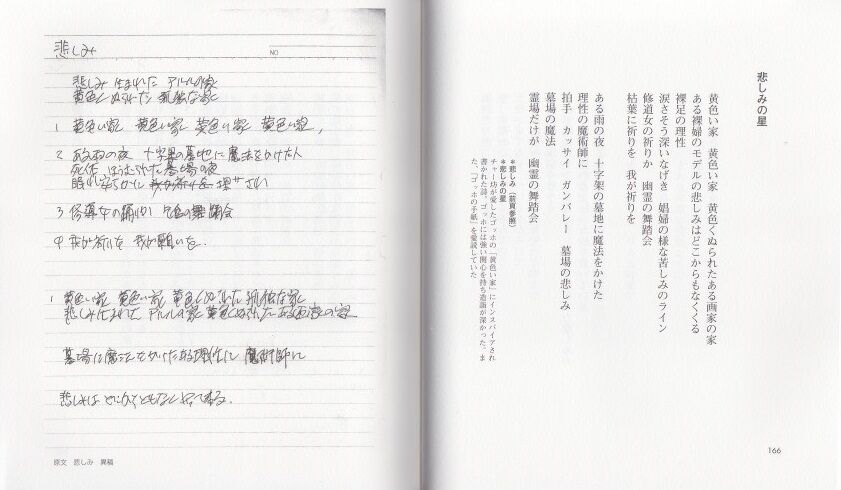 悲しみの星
黄色い家 黄色い家 黄色くぬられたある画家の家
ある裸婦のモデルの悲しみはどこからもなくくる
裸足の理性
涙さそう深いなげき 娼婦の様な苦しみのライン
修道女の祈りか 幽霊の舞踏会
枯葉に祈りを 我が祈りを
ある雨の夜 十字架の墓地に魔法をかけた
理性の魔術師に
拍手 カッサイ ガンバレー 墓場の悲しみ
墓場の魔法
霊場だけが 幽霊の舞踏会
*悲しみ(前頁参照)
*悲しみの星
チャー坊が愛したゴッホの「黄色い家」にインスパイアされ
書かれた詩。ゴッホには強い関心を持ち造詣が深かった。ま
た、「ゴッホの手紙」を愛読していた。
166
悲しみ
NO
悲しみ 生まれた アルルの家
黄色くぬられた 孤独な家
1 黄色い家 黄色い家 黄色い家 黄色い家,
2 ある雨の夜 十字架の墓地に魔法をかけた人
墓場の夜
眠れ安らかに
3 修道女の踊りか 舞踊会
4 我が祈りを 我が願いを.
1 黄色い家 黄色い家 黄色くぬられた 孤独な家
悲しみ 生まれた アルルの家 黄色くぬられた ある画家の家
墓場に魔法をかけたある理性に 魔術師に
悲しみは どこからともなくやって来る.
原文 悲しみ 異稿